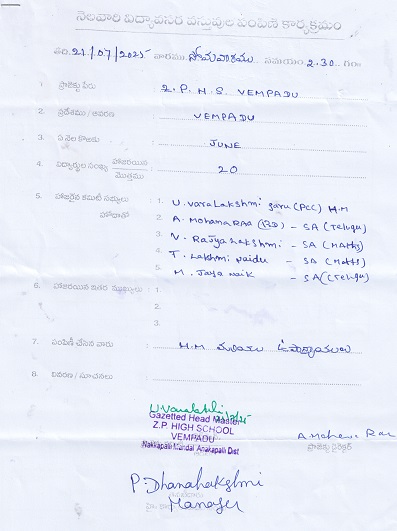 నెలవారి విద్యావసర వస్తువుల పంపిణి కార్యక్రమం
తేది. 21/07/2025 వారము. సోమవారము సమయం 2.30. గం॥
1. ప్రాజెక్టు పేరు : Z. P. H. S. VEMPADU
2. ప్రదేశము / ఆవరణ : VEMPADU
3. ఏ నెల కొఱకు : JUNE
4. విద్యార్థుల సంఖ్య హాజరయిన మొత్తము : 20
5. హాజరైన కమిటీ సభ్యులు హోదాతో : 1. U. Varalakshmi garu (PCC) H.M
2. A. Mohana Rao (PD) - SA (Telugu)
3. N. Rajya Lakshmi - SA (Maths)
4. T. Lakhmi naidu - SA (Maths)
5. M. Jaya naik - SA (Telugu)
6. హాజరయిన ఇతర ముఖ్యులు : 1.
2.
3.
7. పంపిణీ చేసిన వారు : H.M మరియు ఉపాధ్యాయులు
8. వివరణ / సూచనలు :
U. Varalakshmi 21/7/25
Gazetted Head Master
Z.P. HIGH SCHOOL
VEMPADU
Nakkapalli Mandal Anakapalli Dist
A Mohana Rao
ప్రాజెక్టు డైరెక్టర్
P. Dhanalakshmi
Manager